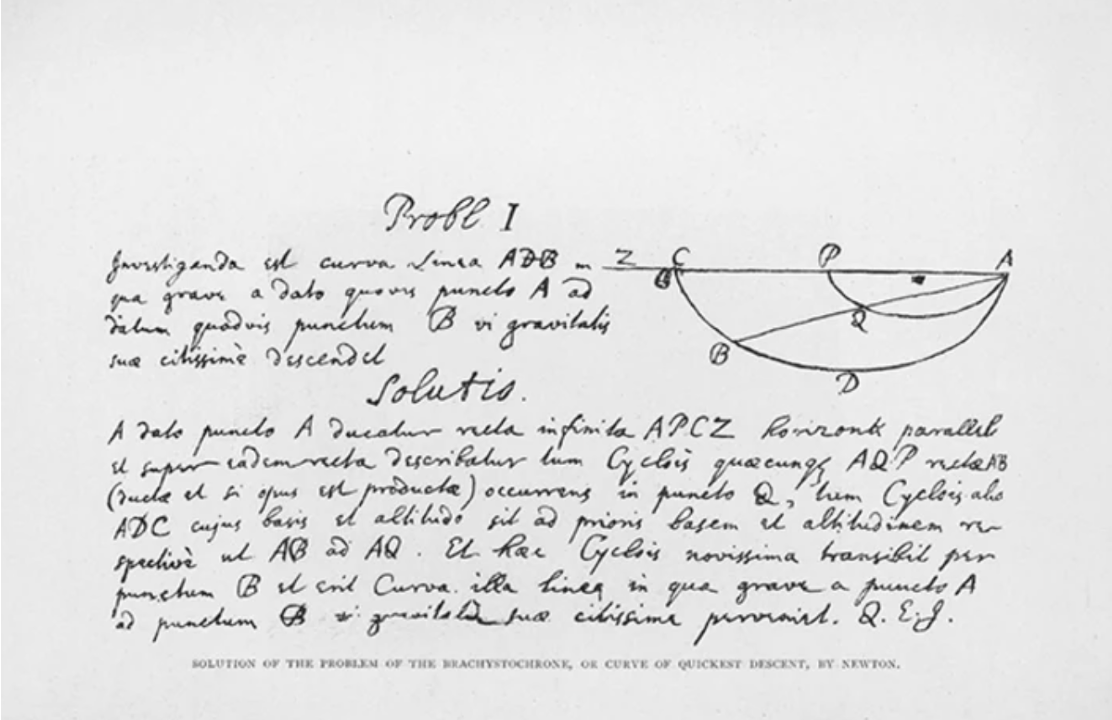 Probl I
Investiganda est curva Linea ADB in
qua grave a dato quovis puncto A ad
datum quodvis punctum B vi gravitatis
suæ citissimè descendet
Z C P A
B
Q
B
D
Solutio.
A dato puncto A ducatur recta infinita APCZ horizonti parallela
et super eadem recta describatur tum Cyclois quæcunqꝫ AQP rectæ AB
(ductæ et si opus est productæ) occurrens in puncto Q, tum Cyclois alia
ADC cujus basis et altitudo sit ad prioris basem et altitudinem re-
spectivè ut AB ad AQ. Et hæc Cyclois novissima transibit per
punctum B et erit Curva illa linea in qua grave a puncto A
ad punctum B vi gravitatis suæ citissime perveniet. Q.E.I.
SOLUTION OF THE PROBLEM OF THE BRACHYSTOCHRONE, OR CURVE OF QUICKEST DESCENT, BY NEWTON.